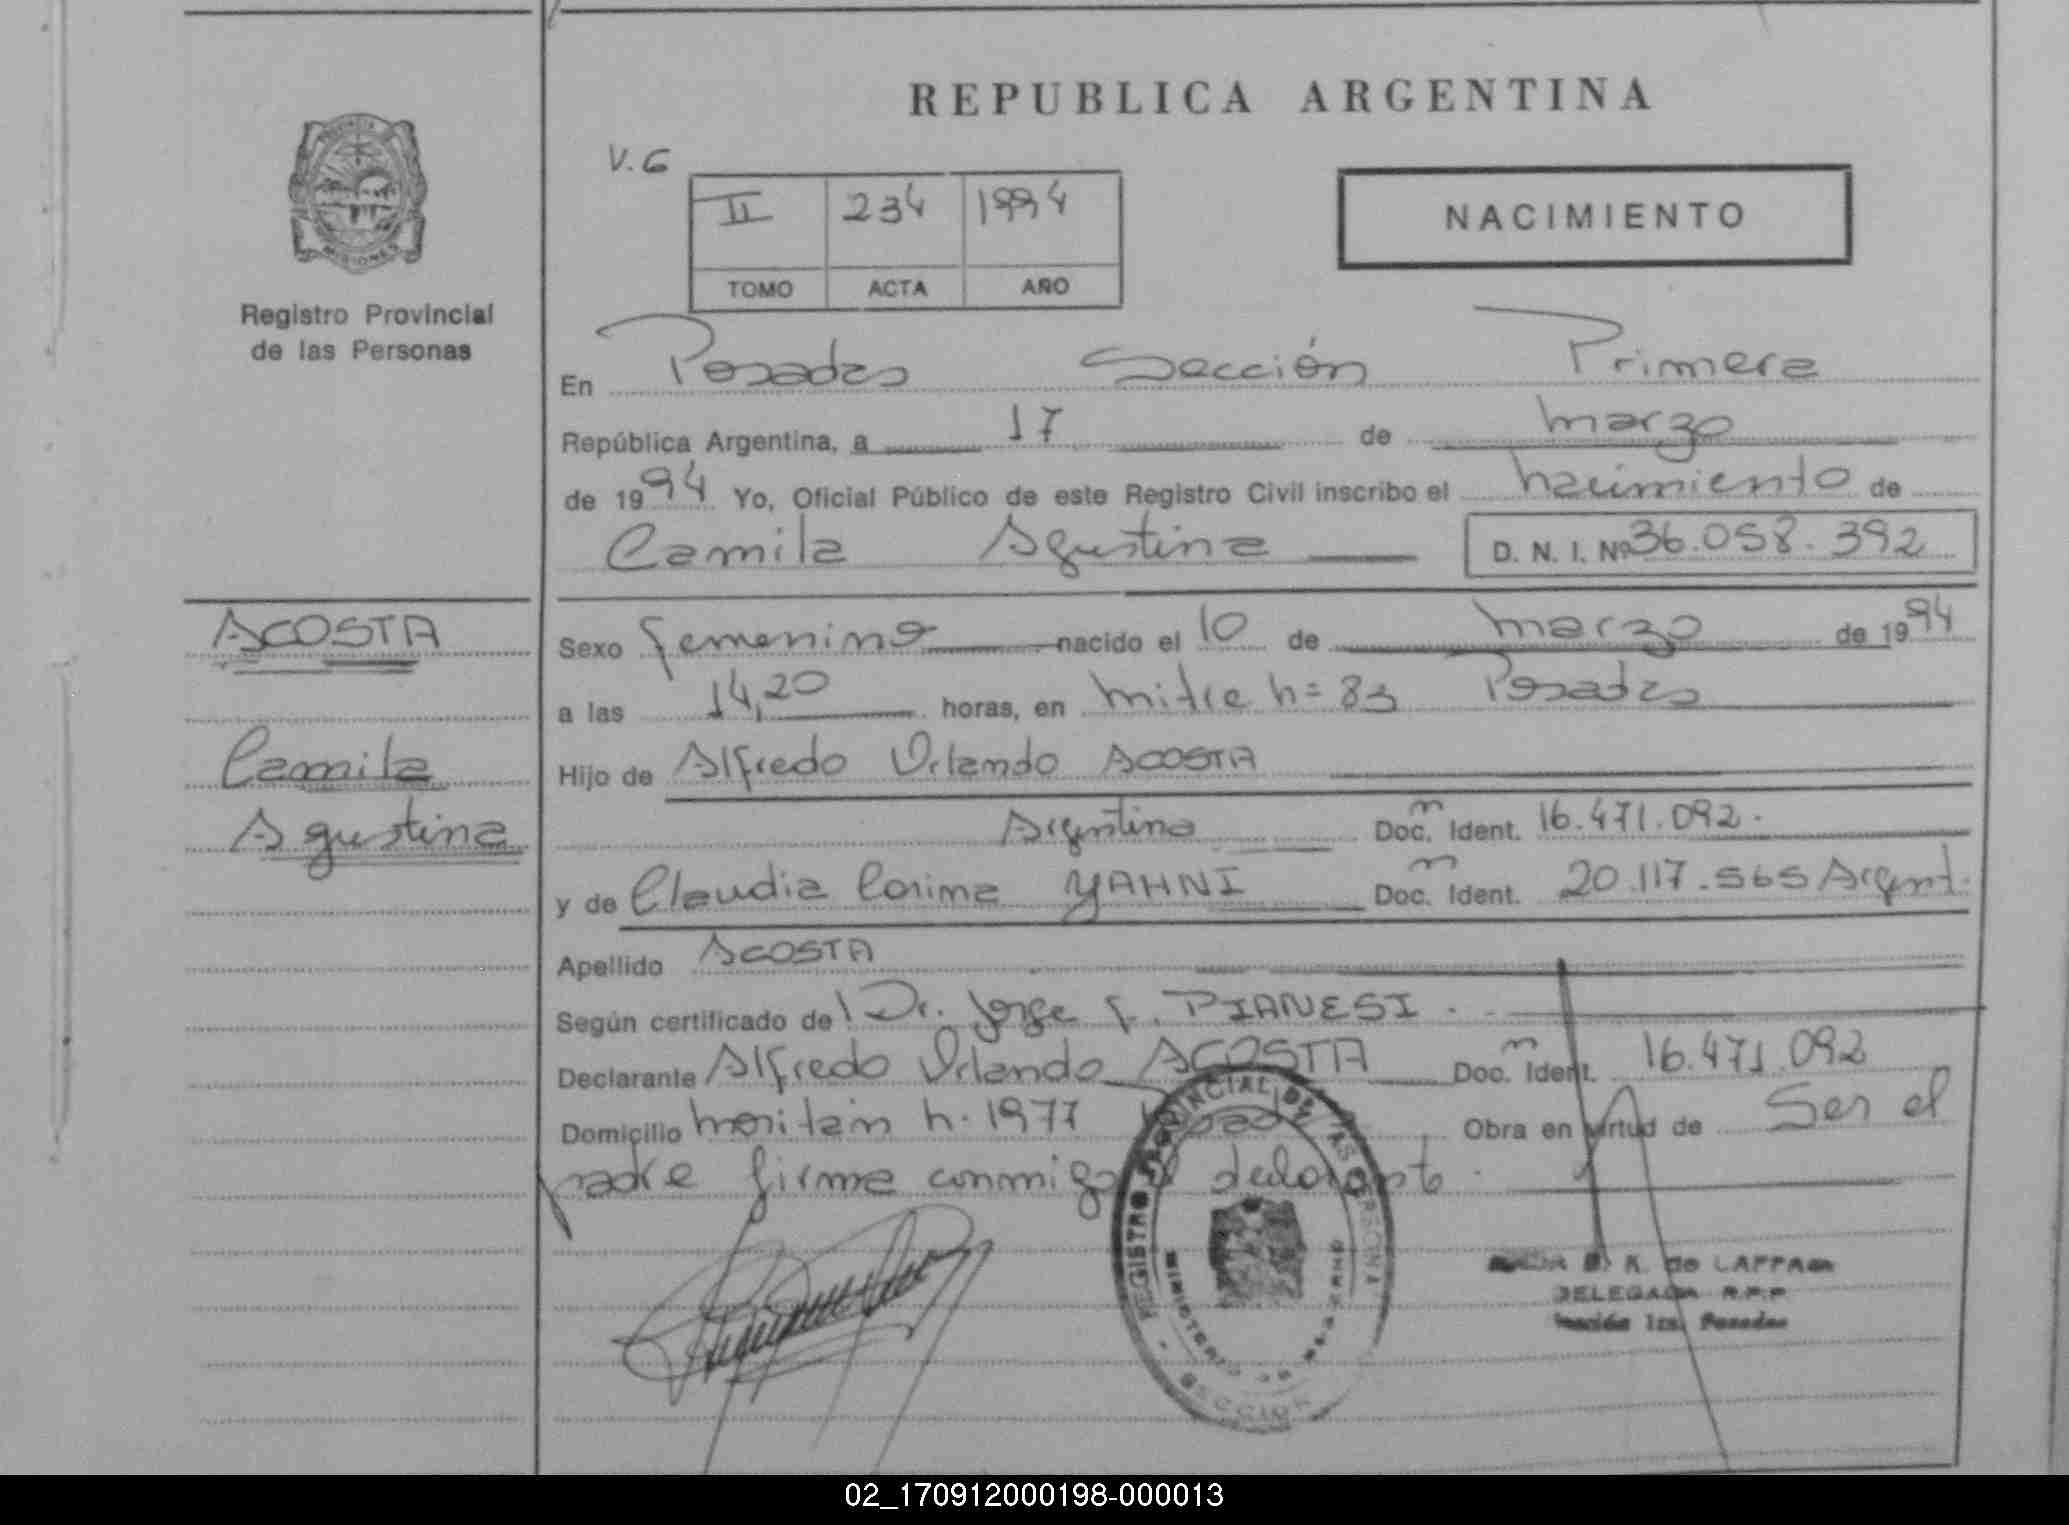 REPUBLICA ARGENTINA
PROVINCIA
MISIONES
Registro Provincial
de las Personas
V.G
II 234 1994
TOMO ACTA AÑO
NACIMIENTO
En Posadas Sección Primera
República Argentina, a 17 de marzo
de 1994 Yo, Oficial Público de este Registro Civil inscribo el nacimiento de
Camila Agustina D. N. I. Nº 36.058.392
ACOSTA
Camila
Agustina
Sexo femenino nacido el 10 de marzo de 1994
a las 14,20 horas, en Mitre n= 83 Posadas
Hijo de Alfredo Orlando ACOSTA
Argentino Doc. Ident. 16.471.092.
y de Claudia Corima YAHNI Doc. Ident. 20.117.565 Argent.
Apellido ACOSTA
Según certificado de Dr. Jorge F. PIANESI.
Declarante Alfredo Orlando ACOSTA Doc. Ident. 16.471.092
Domicilio n. 1977 Obra en virtud de Ser el
padre firma conmigo el declarante.
REGISTRO PROVINCIAL DE LAS PERSONAS
MINISTERIO DE
SECCION
K. de LAPPA
DELEGADA R.P.P
Sección 1ra. Posadas
02_170912000198-000013